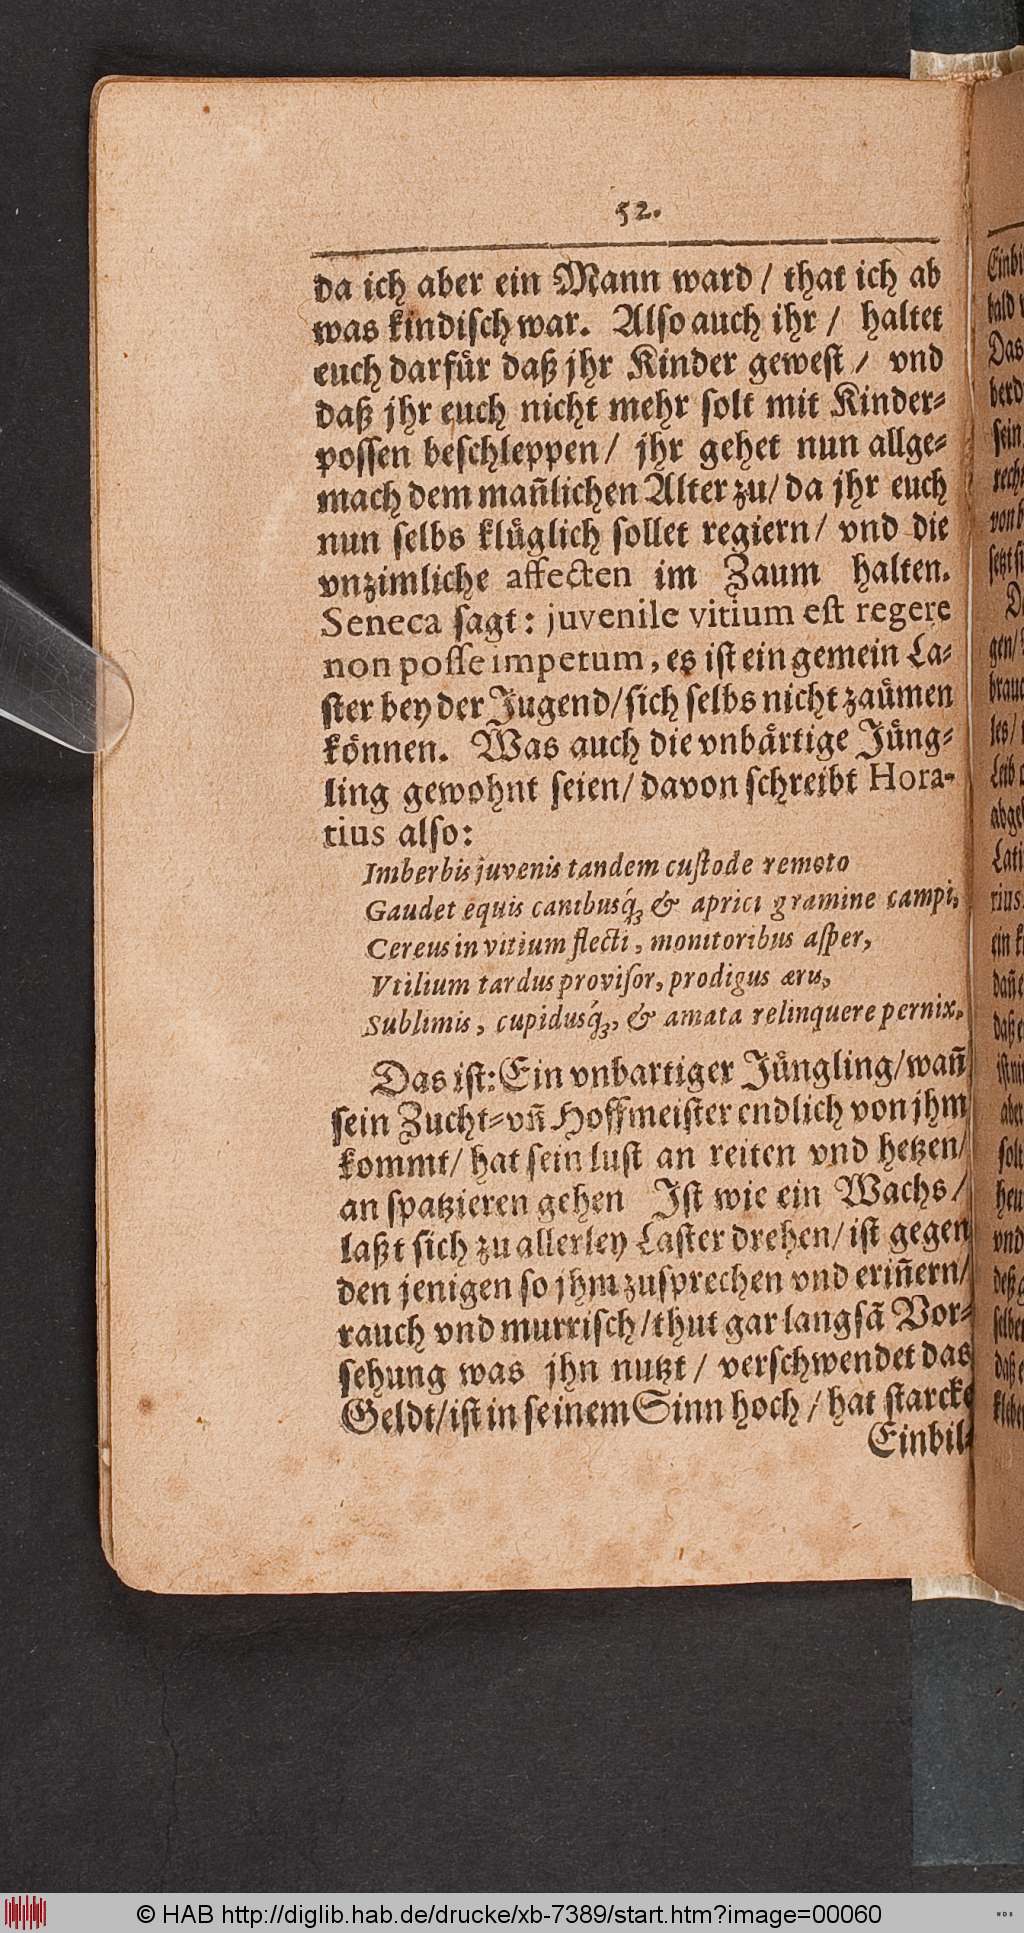 52.
da ich aber ein Mann ward / that ich ab
was kindisch war. Also auch ihr / haltet
euch darfür daß jhr Kinder gewest / vnd
daß jhr euch nicht mehr solt mit Kinder⸗
possen beschleppen / jhr gehet nun allge⸗
mach dem mañlichen Alter zu / da jhr euch
nun selbs klüglich sollet regiern / vnd die
vnzimliche affecten im Zaum halten.
Seneca sagt: juvenile vitium est regere
non posse impetum, es ist ein gemein La⸗
ster bey der Jugend / sich selbs nicht zaümen
können. Was auch die vnbärtige Jüng⸗
ling gewohnt seien / davon schreibt Hora-
tius also:
Imberbis juvenis tandem custode remoto
Gaudet equis canibusq́ꝫ & aprici gramine campi,
Cereus in vitium flecti, monitoribus asper,
Vtilium tardus provisor, prodigus æris,
Sublimis, cupidusq́ꝫ, & amata relinquere pernix.
Das ist: Ein vnbartiger Jüngling / wañ
sein Zucht⸗vñ Hoffmeister endlich von jhm
kommt / hat sein lust an reiten vnd hetzen /
an spatzieren gehen Ist wie ein Wachs /
laßt sich zu allerley Laster drehen / ist gegen
den jenigen so jhm zusprechen vnd eriñern /
rauch vnd murrisch / thut gar langsã Vor⸗
sehung was jhn nutzt / verschwendet das
Geldt / ist in seinem Sinn hoch / hat starcke
Einbil⸗
Einbi
bald
Das
berd
sein
recht
von
setzt
gen /
brauc
les /
Leib
abge
Lati
rius
ein
dañ
daß
aber
solt
heu
vnd
deß
selbe
daß
klebe
© HAB http://diglib.hab.de/drucke/xb-7389/start.htm?image=00060
WDB